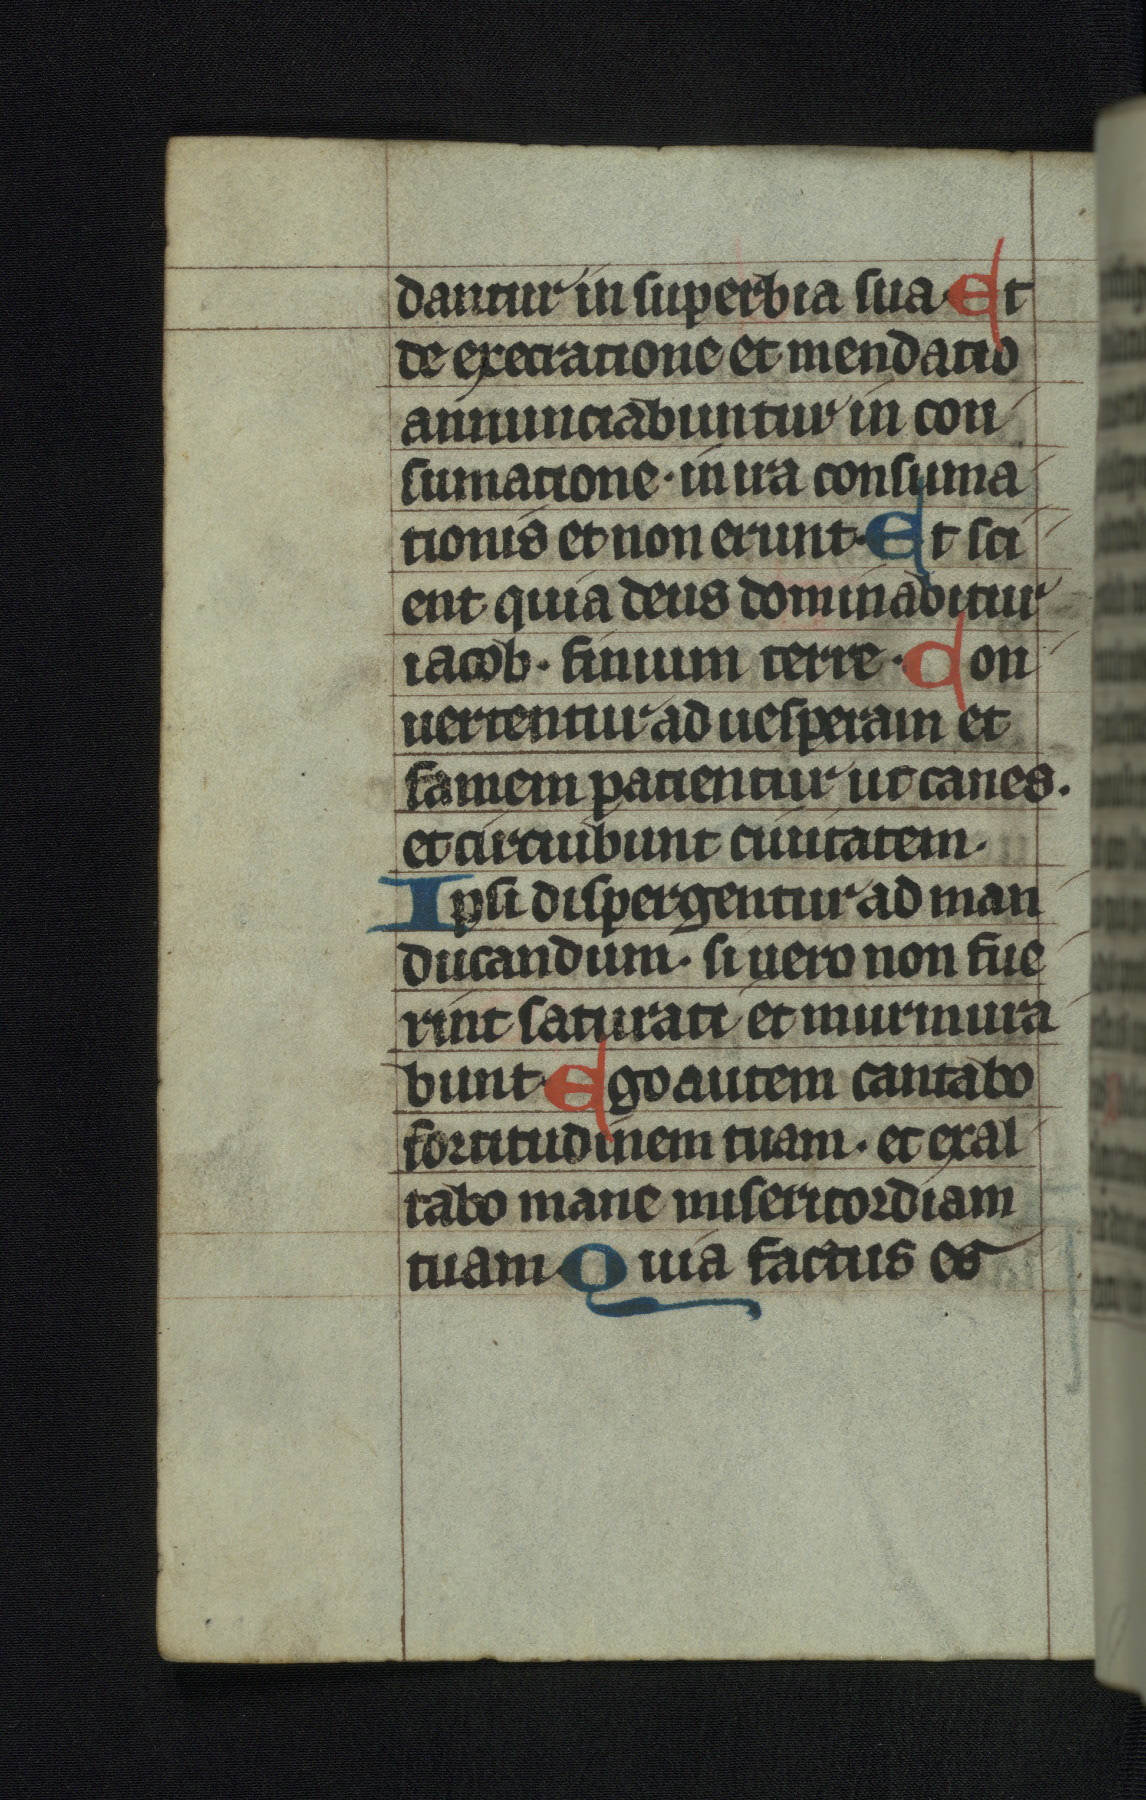 dantur in superbia sua Et
de execratione et mendatio
annunciabuntur in con
sumatione · in ira consuma
tionis et non erunt · Et sci
ent quia deus dominabitur
iacob · finium terre · Con
uertentur ad uesperam et
famem patientur ut canes .
et circuibunt ciuitatem .
Ipsi dispergentur ad man
ducandum · si uero non fue
rint saturati et murmura
bunt · Ego autem cantabo
fortitudinem tuam · et exal
tabo mane misericordiam
tuam Quia factus es